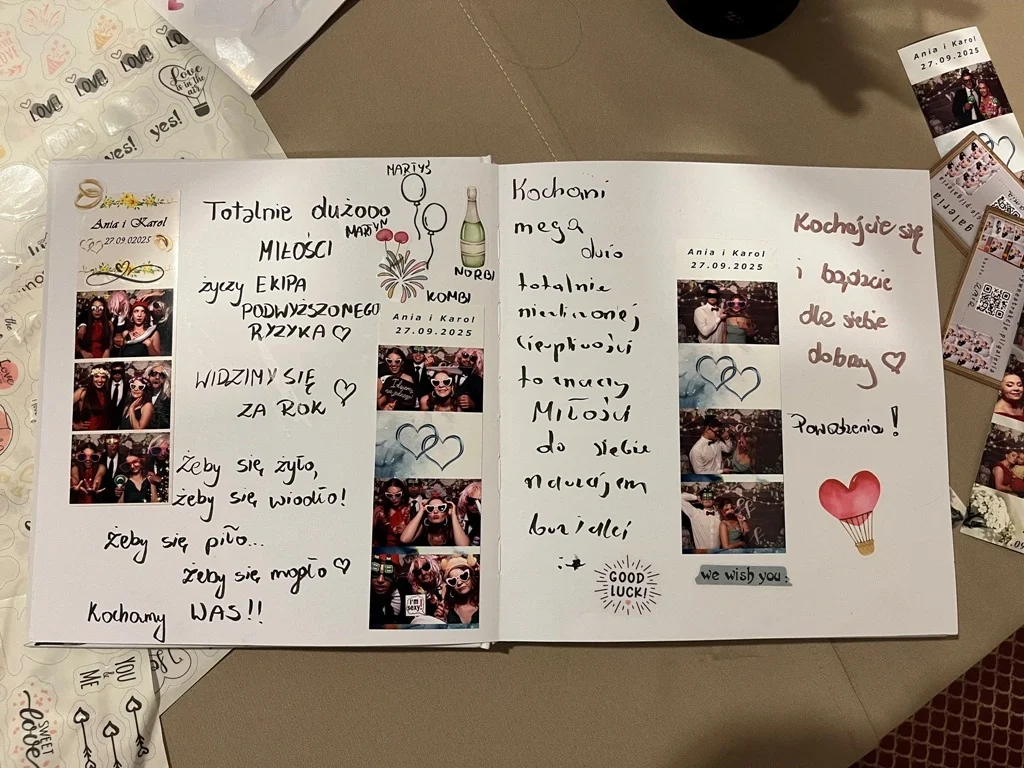 LOVE!
LOVE!
LOVE!
Love
is in the
air
yes!
yes!
Ania i Karol
27.09.2025
MARTYŚ
MARTYN
NORBI
KOMBI
Ania i Karol
27.09.02025
Totalnie dużooo
MIŁOŚCI
życzy EKIPA
PODWYŻSZONEGO
RYZYKA ♡
WIDZIMY SIĘ
ZA ROK ♡
Żeby się żyło,
żeby się wiodło!
Żeby się piło...
Żeby się mogło ♡
Kochamy WAS!!
Ania i Karol
27.09.2025
I'm
sexy!
Kochani
mega
dużo
totalnie
cierpliwości
to
Miłości
do siebie
nawzajem
GOOD
LUCK!
Ania i Karol
27.09.2025
we wish you:
Kochajcie się
i bądźcie
dla siebie
dobrzy ♡
Powodzenia!
galeria
YOU
&
ME
SWEET
love